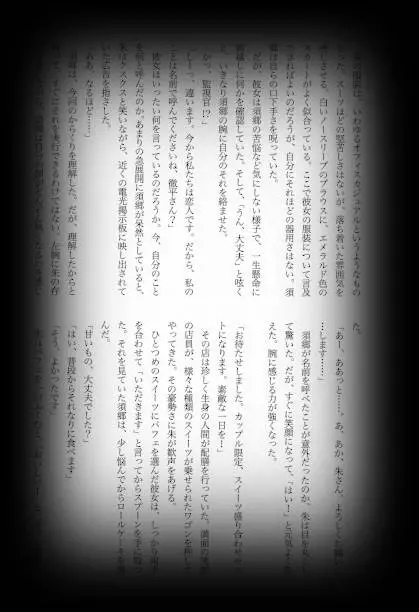 服装は、いわゆるオフィスカジュアルというようなもの
スーツほどの堅苦しさはないが、落ち着いた雰囲気を
させる。白いノースリーブのブラウスに、エメラルド色の
スカートがよく似合っている。ここで彼女の服装について言及
できればよいのだろうが、自分にそれほどの器用さはない。須
郷は自らの口下手さを呪っていた。
が、彼女は須郷の苦悩など気にしない様子で、一生懸命に
に何かを確認していた。そして、「うん、大丈夫」と呟く
いきなり須郷の腕に自分のそれを絡ませた。
監視官!?」
違います。今から私たちは恋人です。だから、私の
は名前で呼んでくださいね、徹平さん?」
彼女はいったい何を言っているのだろうか。今、自分のこと
を何と呼んだのか。あまりの急展開に須郷が呆然としていると、
朱はクスクスと笑いながら、近くの電光掲示板に映し出されて
いた広告を指さした。
「ああ、なるほど……」
須郷は、今回のからくりを理解した。だが、理解したからと
すぐにそれを実行できるわけではない。左腕に朱の存
た。
「あー、ああっと……、あ、あか、朱さん、よろしくお願い
…します……」
須郷が名前を呼べたことが意外だったのか、朱は目を丸く
て驚いた。だが、すぐに笑顔になって、「はい!」と元気よく
えた。腕に感じる力が強くなった。
「お待たせしました。カップル限定、スイーツ盛り合わせセ
トになります。素敵な一日を!」
その店は珍しく生身の人間が配膳を行っていた。満面の
の店員が、様々な種類のスイーツが乗せられたワゴンを押して
やってきた。その豪勢さに朱が歓声をあげる。
ひとつめのスイーツにパフェを選んだ彼女は、しっかり
を合わせて「いただきます」と言ってからスプーンを手に取っ
た。それを見ていた須郷は、少し悩んでからロールケーキを
んだ。
「甘いもの、大丈夫でした?」
「はい、普段からそれなりに食べます」
「そう、よかったです」